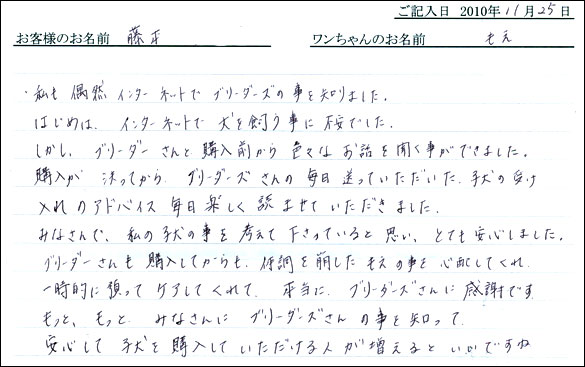 ご記入日 2010年 11月 25日
お客様のお名前 藤正 ワンちゃんのお名前 もえ
・私も 偶然 インターネットで ブリーダーズの 事を 知りました。
はじめは、インターネットで 犬を飼う 事に 不安でした。
しかし、ブリーダー さんと 購入前から 色々な お話を 聞く事ができました。
購入が 決ってから、ブリーダーズ さんの 毎日 送っていただいた 子犬の 受け
入れの アドバイス 毎日 楽しく 読ませて いただきました。
みなさんで、私の 子犬の 事を 考えて 下さっていると 思い、とても 安心しました。
ブリーダーさんも 購入してからも、体調を 崩した もえの 事を 心配してくれ、
一時的に 預って ケアしてくれて、本当に、ブリーダーズさんに 感謝です
もっと、もっと、みなさんに ブリーダーズさん の事を 知って、
安心して 子犬を 購入して いただける 人が 増えると いいですね